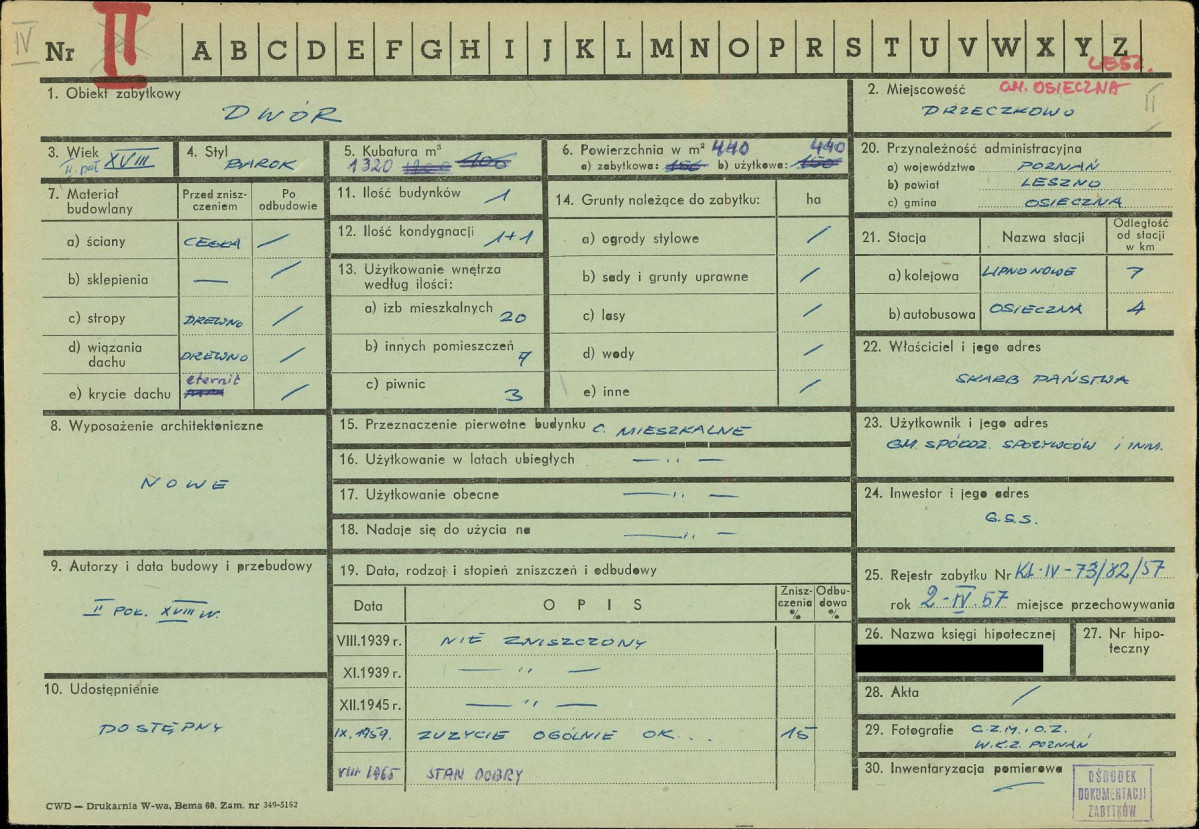 IV
Nr II A B C D E F G H I J K L M N O P R S T U V W X Y Z
LESZ.
1. Obiekt zabytkowy
DWÓR
2. Miejscowość GM. OSIECZNA
DRZECZKOWO
II
3. Wiek XVIII
II poł
4. Styl
BAROK
5. Kubatura m³
1320
6. Powierzchnia w m² 440 440
a) zabytkowa: b) użytkowa:
20. Przynależność administracyjna
a) województwo POZNAŃ
b) powiat LESZNO
c) gmina OSIECZNA
7. Materiał budowlany
Przed zniszczeniem
Po odbudowie
a) ściany CEGŁA /
b) sklepienia — /
c) stropy DREWNO /
d) wiązania dachu DREWNO /
e) krycie dachu eternit /
11. Ilość budynków 1
12. Ilość kondygnacji 1+1
13. Użytkowanie wnętrza
według ilości:
a) izb mieszkalnych 20
b) innych pomieszczeń 7
c) piwnic 3
14. Grunty należące do zabytku: ha
a) ogrody stylowe /
b) sady i grunty uprawne /
c) lasy /
d) wody /
e) inne /
21. Stacja Nazwa stacji Odległość od stacji w km
a) kolejowa LIPNO NOWE 7
b) autobusowa OSIECZNA 4
22. Właściciel i jego adres
SKARB PAŃSTWA
8. Wyposażenie architektoniczne
NOWE
15. Przeznaczenie pierwotne budynku C. MIESZKALNE
16. Użytkowanie w latach ubiegłych — " —
17. Użytkowanie obecne — " —
18. Nadaje się do użycia na — " —
23. Użytkownik i jego adres
GM. SPÓŁDZ. SPOŻYWCÓW i INNI.
24. Inwestor i jego adres
G.S.S.
9. Autorzy i data budowy i przebudowy
II POŁ. XVIII W.
19. Data, rodzaj i stopień zniszczeń i odbudowy
Data OPIS Zniszczenia % Odbudowa %
VIII.1939 r. NIE ZNISZCZONY
XI.1939 r. — " —
XII.1945 r. — " —
IX. 1959. ZUŻYCIE OGÓLNIE OK... 15
VIII 1965 STAN DOBRY
10. Udostępnienie
DOSTĘPNY
25. Rejestr zabytku Nr KL-IV-73/82/57
rok 2-IV.57 miejsce przechowywania
26. Nazwa księgi hipotecznej
27. Nr hipoteczny
28. Akta /
29. Fotografie C.Z.M. i O.Z.
W.K.Z. POZNAŃ
30. Inwentaryzacja pomiarowa —
OŚRODEK
DOKUMENTACJI
ZABYTKÓW
CWD — Drukarnia W-wa, Bema 60. Zam. nr 349-5162